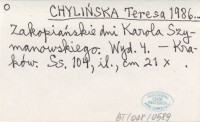 CHYLIŃSKA Teresa 1986...
Zakopiańskie dni Karola Szy-
manowskiego. Wyd. 4. - Kra-
ków. Ss. 104, il., cm 21 x .
BT/008/0589